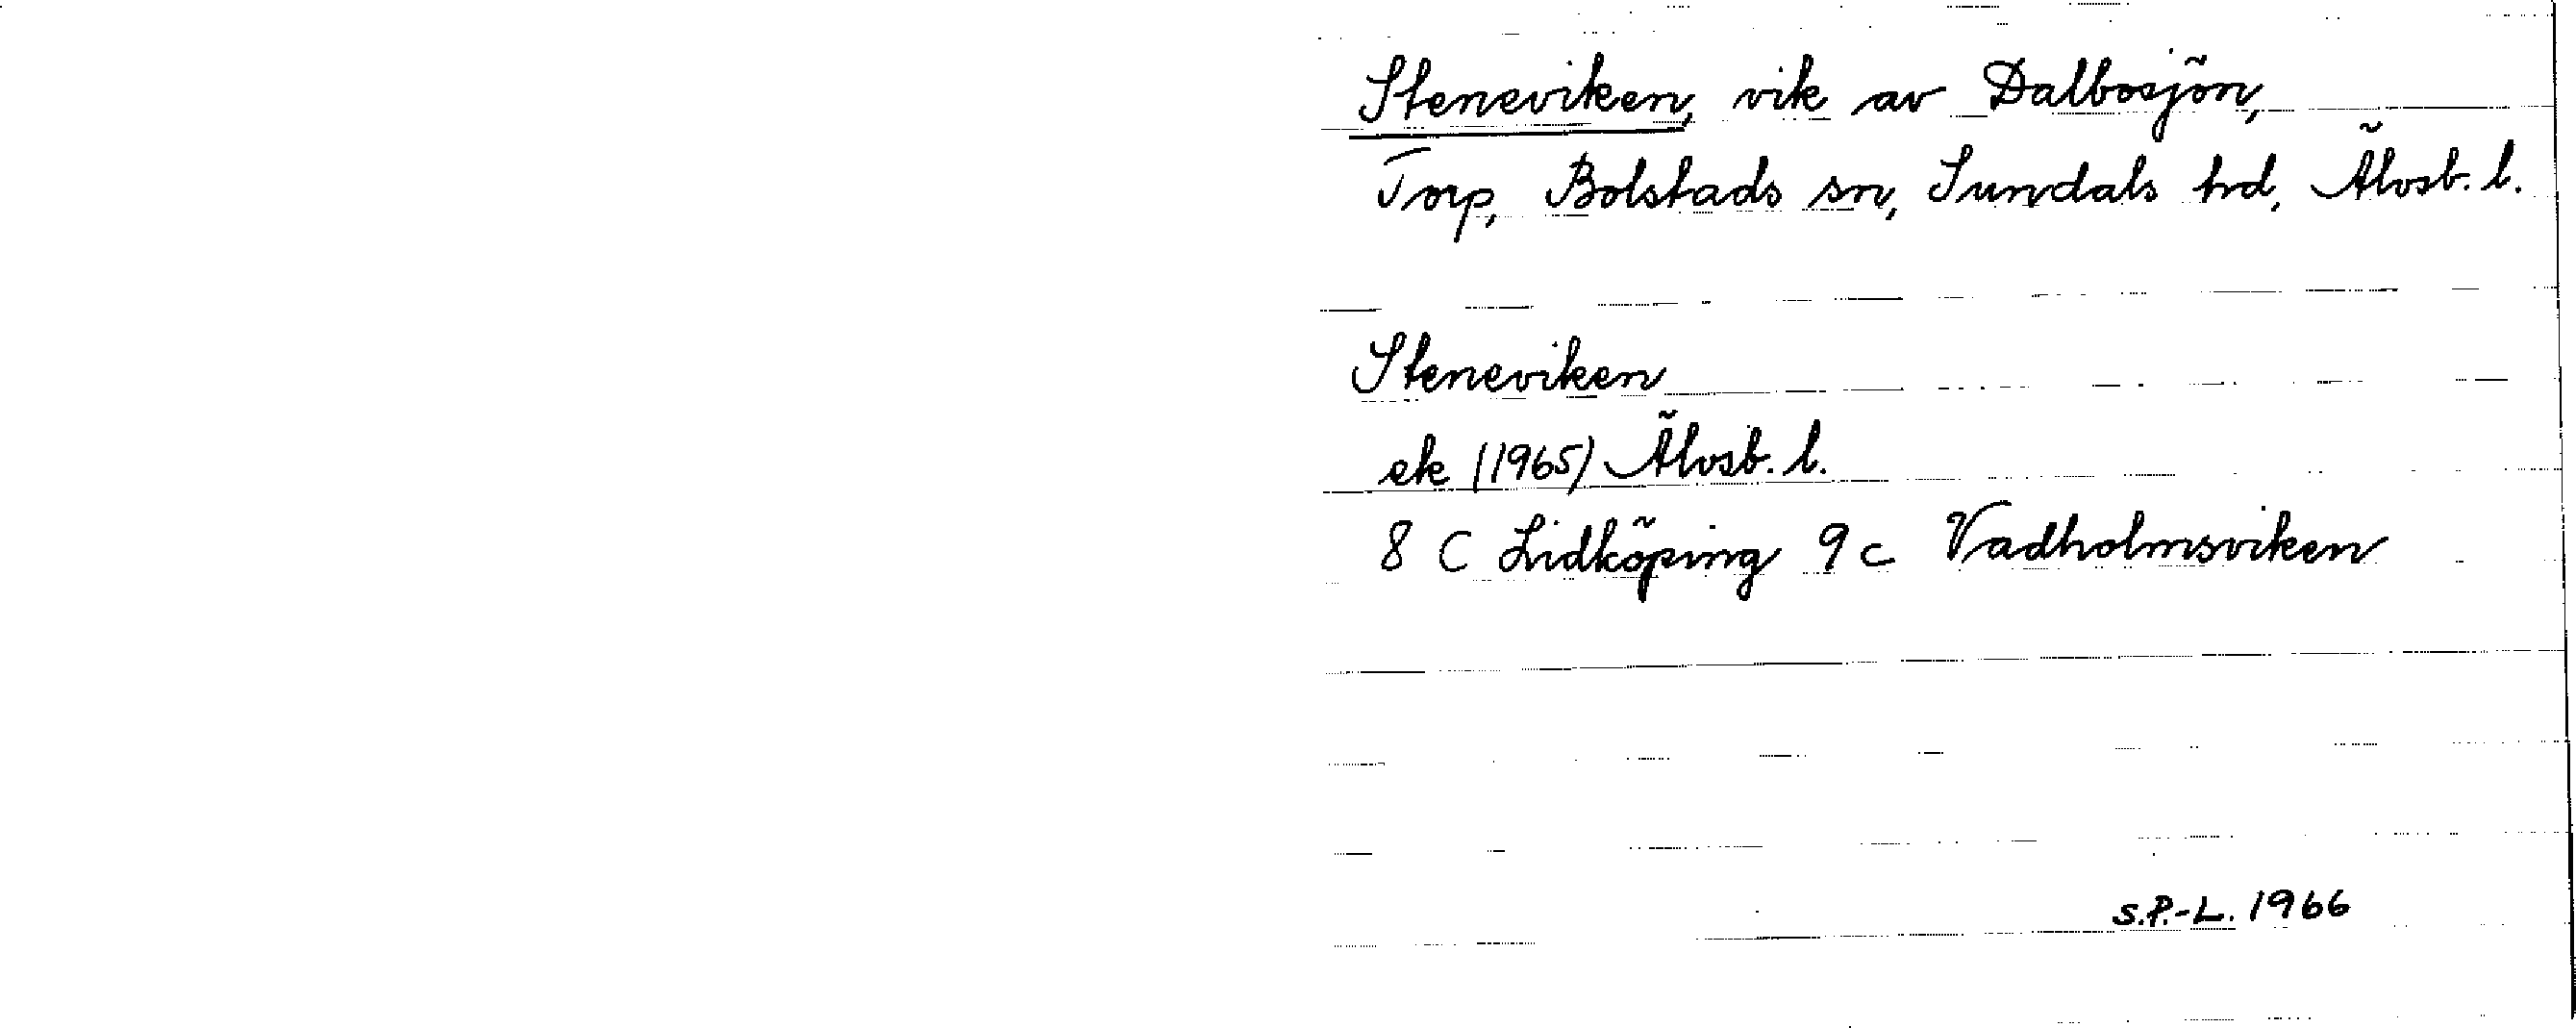 Steneviken, vik av Dalbosjön,
Torp, Bolstads sn, Sundals hd, Älvsb. l.
Steneviken
ek (1965) Älvsb. l.
8 C Lidköping 9 c Vadholmsviken
S.P.-L. 1966